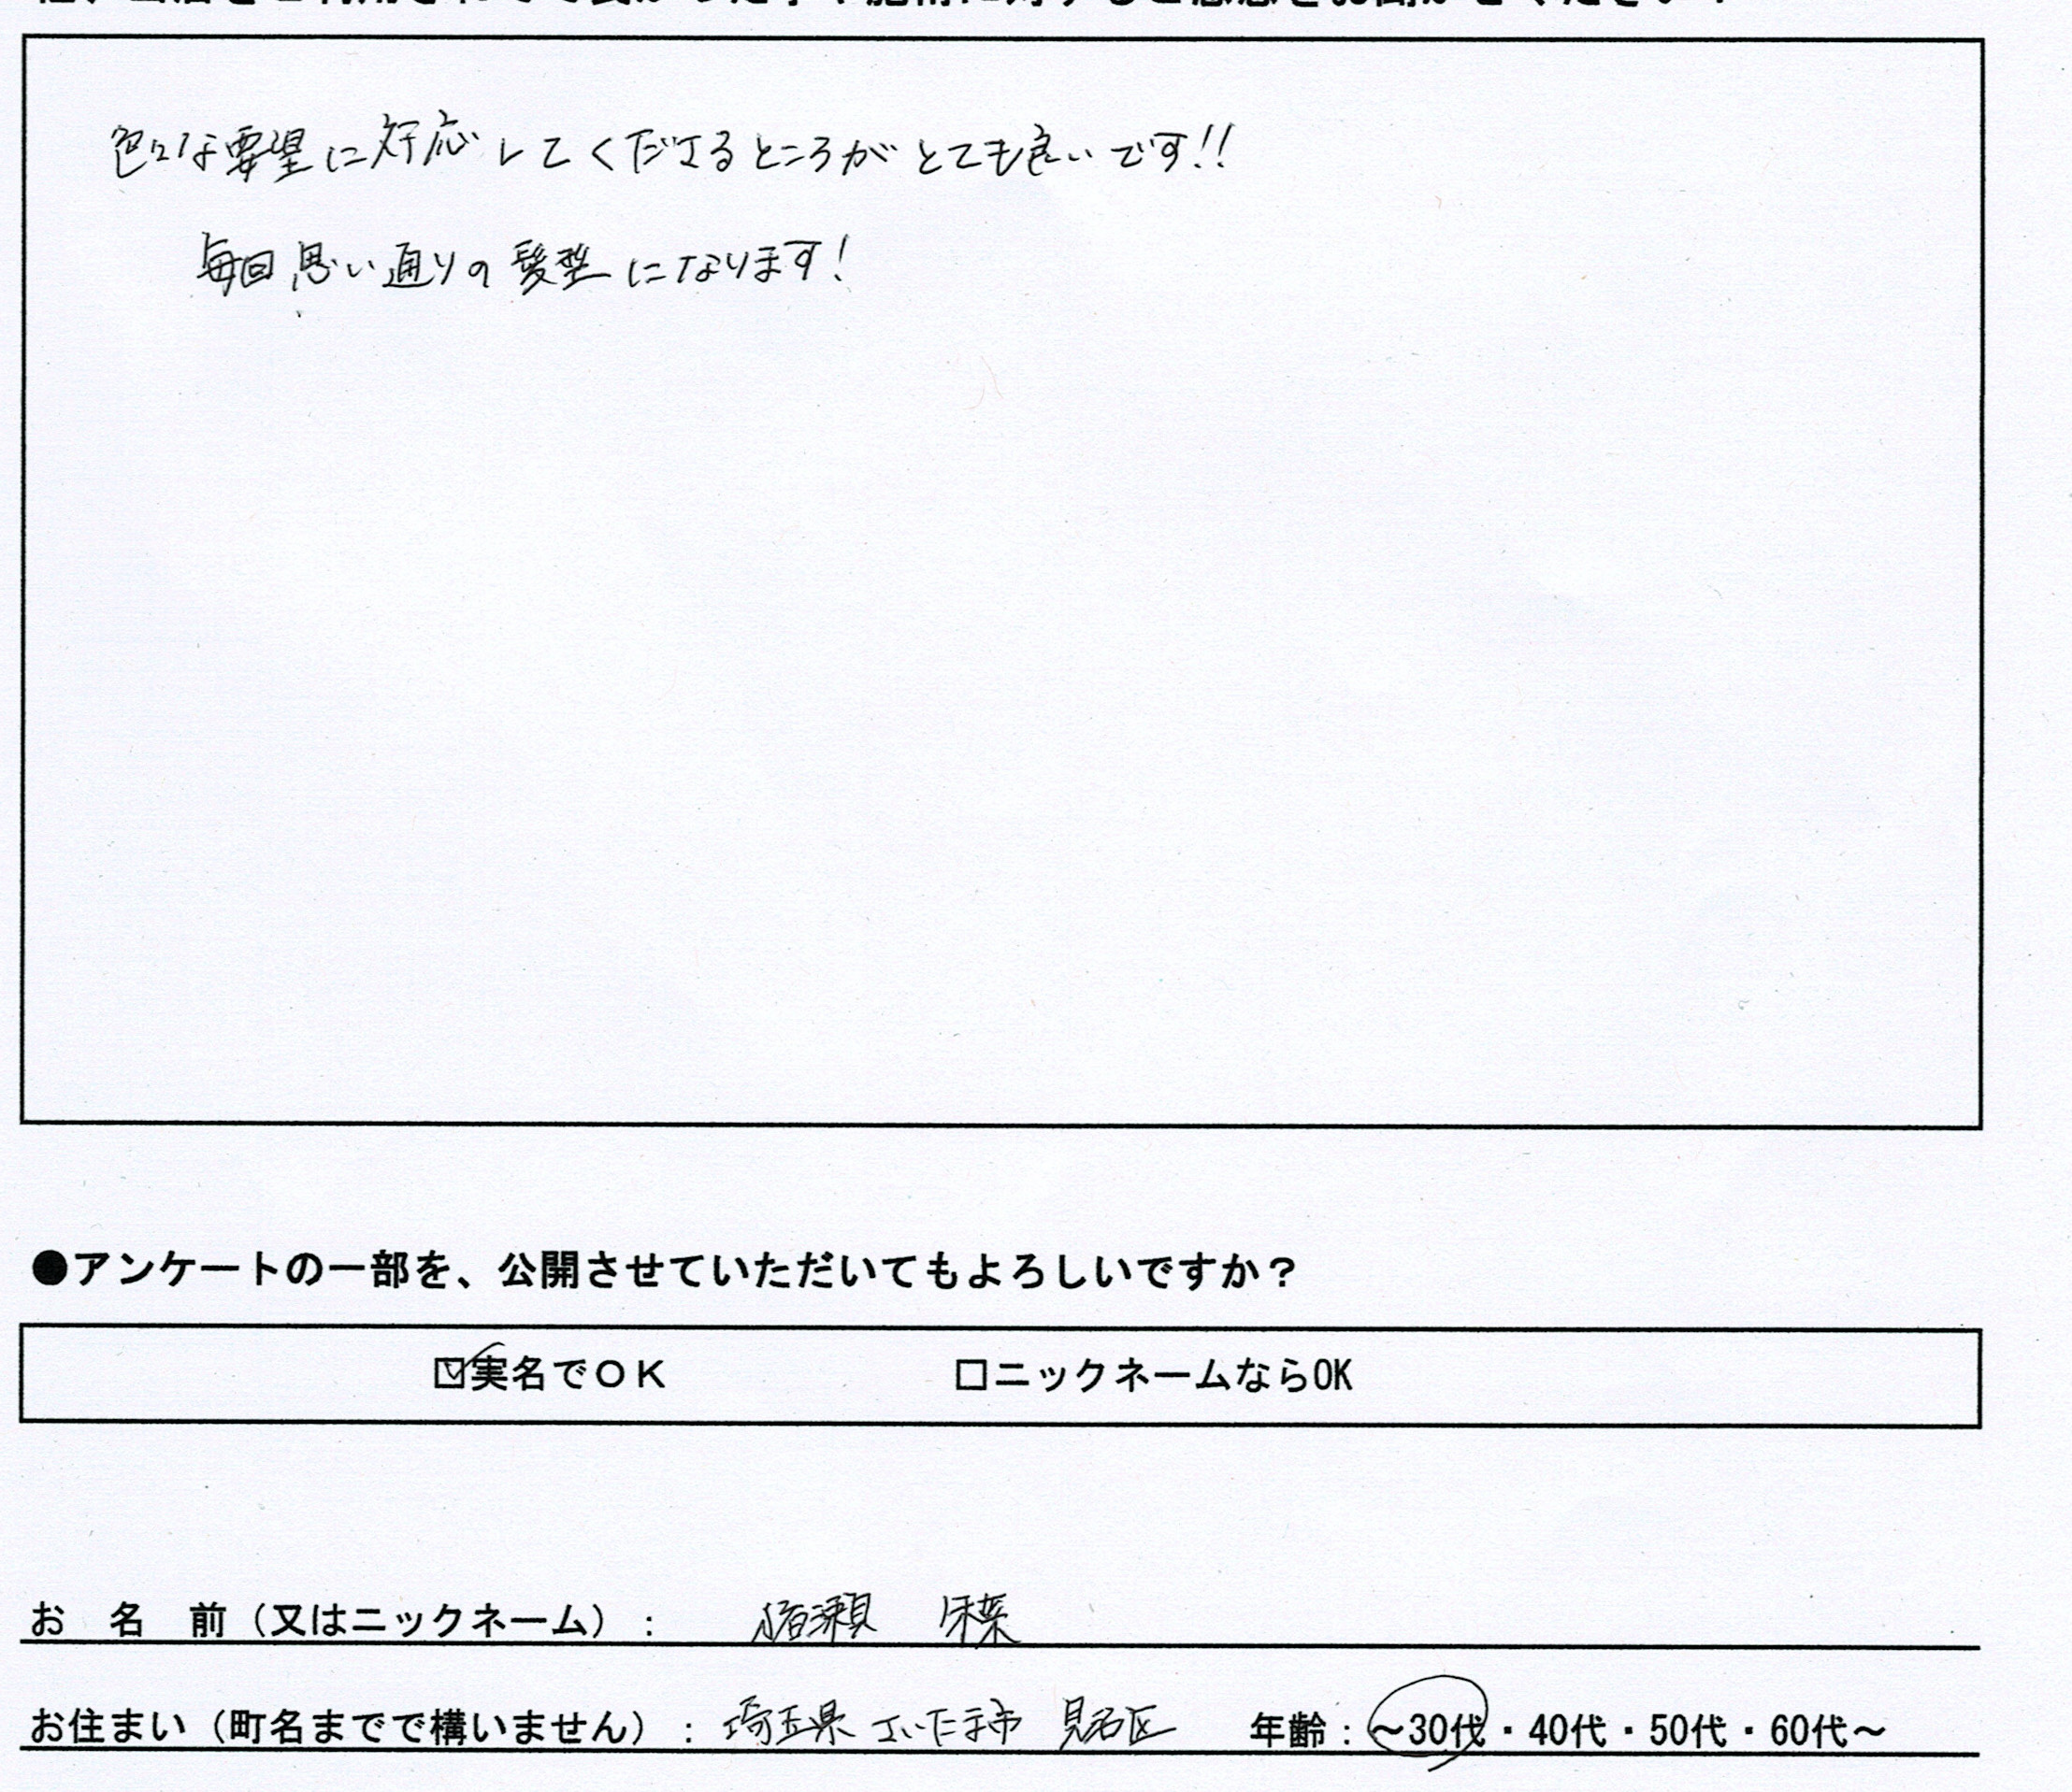 色々な要望に対応してくださるところがとても良いです!!
毎回思い通りの髪型になります!
●アンケートの一部を、公開させていただいてもよろしいですか？
☑実名でＯＫ □ニックネームならOK
お 名 前（又はニックネーム）：
お住まい（町名までで構いません）： 埼玉県 さいたま市 見沼区 年齢：～30代・40代・50代・60代～